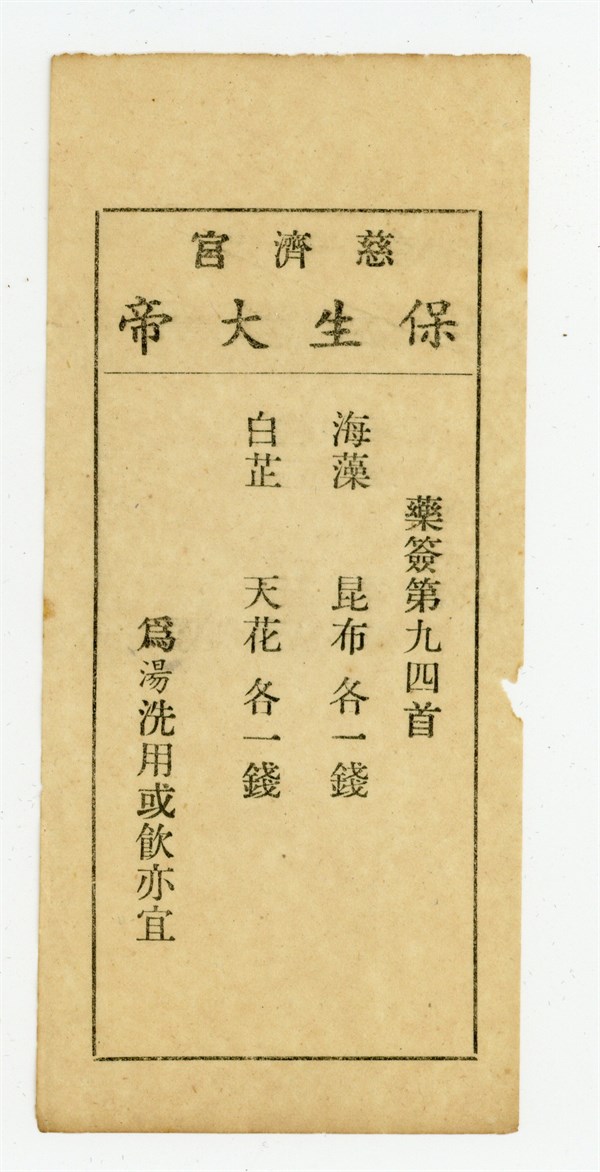 慈濟宮
保生大帝
藥簽第九四首
海藻 昆布 各一錢
白芷 天花 各一錢
爲湯洗用或飮亦宜